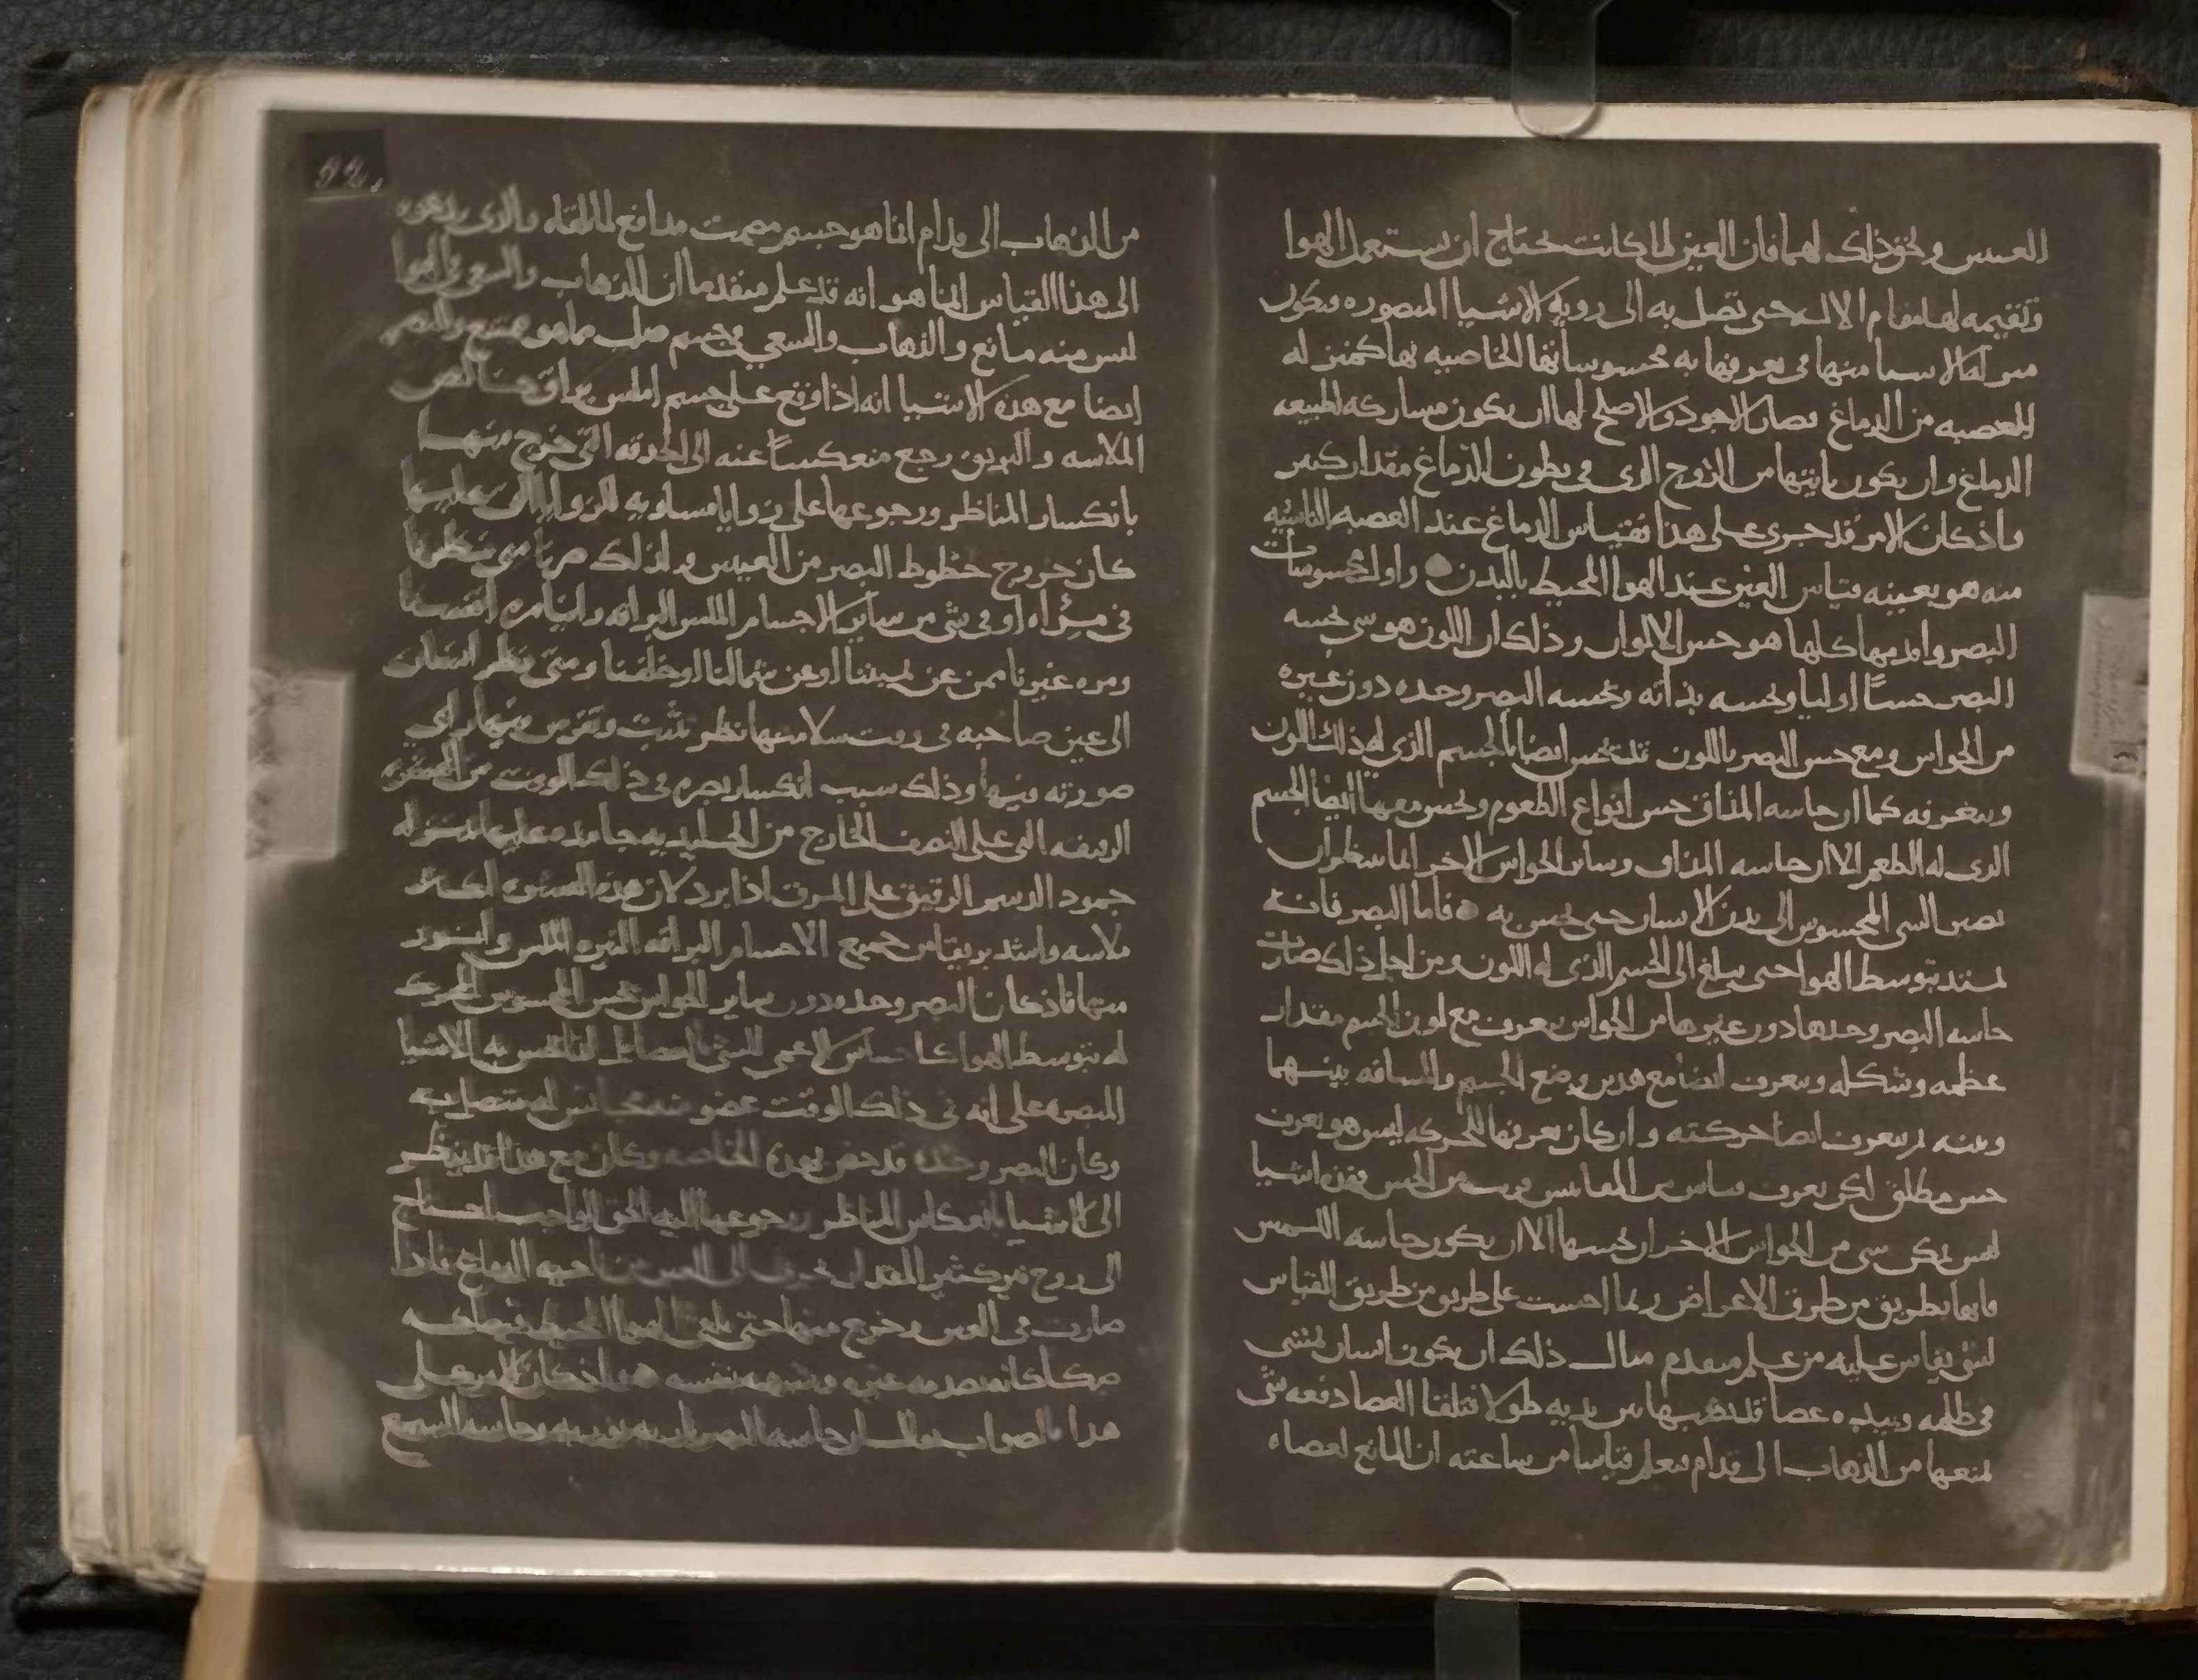 العينين ونحو ذلك لهما فان العين لما كانت تحتاج ان تستعمل الهوا
وتقيمه لها مقام الاله حتى تصل به الى رويه الاشيا المبصوره ويكون
له الاشيا منها في تعرفها به محسوساتها الخاصيه بها كمنزله
العصبه من الدماغ صار الاجود والاصلح لها ان يكون مشاركه لطبيعه
الدماغ وان يكون ياتيها من الروح الذي في بطون الدماغ مقدار كثير
واذ كان الامر قد جرى على هذا فقياس الدماغ عند العصبه الناشيه
منه هو بعينه قياس العين عند الهوا المحيط بالبدن واول محسوسات
البصر واقدمها كلها هو حس الالوان وذلك ان اللون هو شي يحسه
البصر حسًا اوليا ويحسه بذاته ويحسه البصر وحده دون غيره
من الحواس ومع حس البصر باللون قد يحس ايضا بالجسم الذي له ذلك اللون
ويتعرفه كما ان حاسه المذاق تحس انواع الطعوم وتحس معها ايضا الجسم
الذي له الطعم الا ان حاسه المذاق وساير الحواس الاخر انما تنتظر ان
يصير الشي المحسوس الى بدن الانسان حتى تحس به فاما البصر فانه
يمتد بتوسط الهوا حتى يبلغ الى الجسم الذي له اللون ومن اجل ذلك صارت
حاسه البصر وحدها دون غيرها من الحواس تعرف مع لون الجسم مقدار
عظمه وشكله وتعرف ايضا مع هذين وضع الجسم والمسافه بينهما
وبينه وتعرف ايضا حركته وان كان تعرفها للحركه ليس هو تعرف
حس مطلق لكن تعرف قياس من المقاييس قريب من الحس فهذه اشيا
ليس يمكن شي من الحواس الاخر ان يحسها الا ان يكون حاسه اللمس
فانها بطريق من طرق الاعراض ربما احست على طريق من طريق القياس
لشي يقاس عليه من علم متقدم مثال ذلك ان يكون انسان يمشي
في ظلمه وبيده عصا قد نصبها بين يديه طولا فتلقا العصا دفعه شي
يمنعها من الذهاب الى قدام فيعلم قياسا من ساعته ان المانع لعصاه
من الذهاب الى قدام انما هو جسم مصمت مدافع لما لقيه والذي يدعوه
الى هذا القياس انما هو انه قد علم متقدما ان الذهاب والسعي في الهوا
ليس منه مانع والذهاب والسعي في جسم صلب مما هو ممتنع والبصر
ايضا مع هذه الاشيا انه اذا وقع على جسم املس براق حسا
الملاسه والبريق رجع منعكسًا عنه الى الحدقه التي خرج منها
بانكسار المناظر ورجوعها على زوايا مساويه للزوايا التي عليها
كان خروج خطوط البصر من العينين ولذلك صرنا متى نظرنا
في مراه او في شي من ساير الاجسام الملس البراقه راينا مره انفسنا
ومره غيرنا ممن عن يميننا او عن شمالنا او خلفنا ومتى نظر انسان
الى عين صاحبه في وقت سلامتها نظر تثبت وتفرس فيها راى
صورته فيها وذلك بسبب انكسار بصره في ذلك الوقت من القشره
الرقيقه التي على النصف الخارج من الجليديه جامده عليها بمنزله
جمود الدسم الرقيق على المرق اذا برد لان هذه القشره اكثر
ملاسه واشد بريقا من جميع الاجسام البراقه النيره الملس وانور
منها فاذ كان البصر وحده دون ساير الحواس يحس المحسوس المحرك
له بتوسط الهوا كما الاعمى الشي
المبصره على انه في ذلك الوقت عضو متصل به
وكان البصر وحده قد خص بهذه الخاصه وكان مع هذا قد ينظر
الى الاشيا بانعكاس المناظر ورجوعها اليه الحق الواجب احتاج
الى روح نير كثير المقدار يجري الى العين من ناحيه الدماغ فاذا
صارت في العين وخرج منها حتى يلقى الهوا المحيط
صكا كانه يصدمه غيره ويشبهه بنفسه واذ كان الامر على
هذا فالصواب يقال ان حاسه البصر ناريه نوريه وحاسه السمع